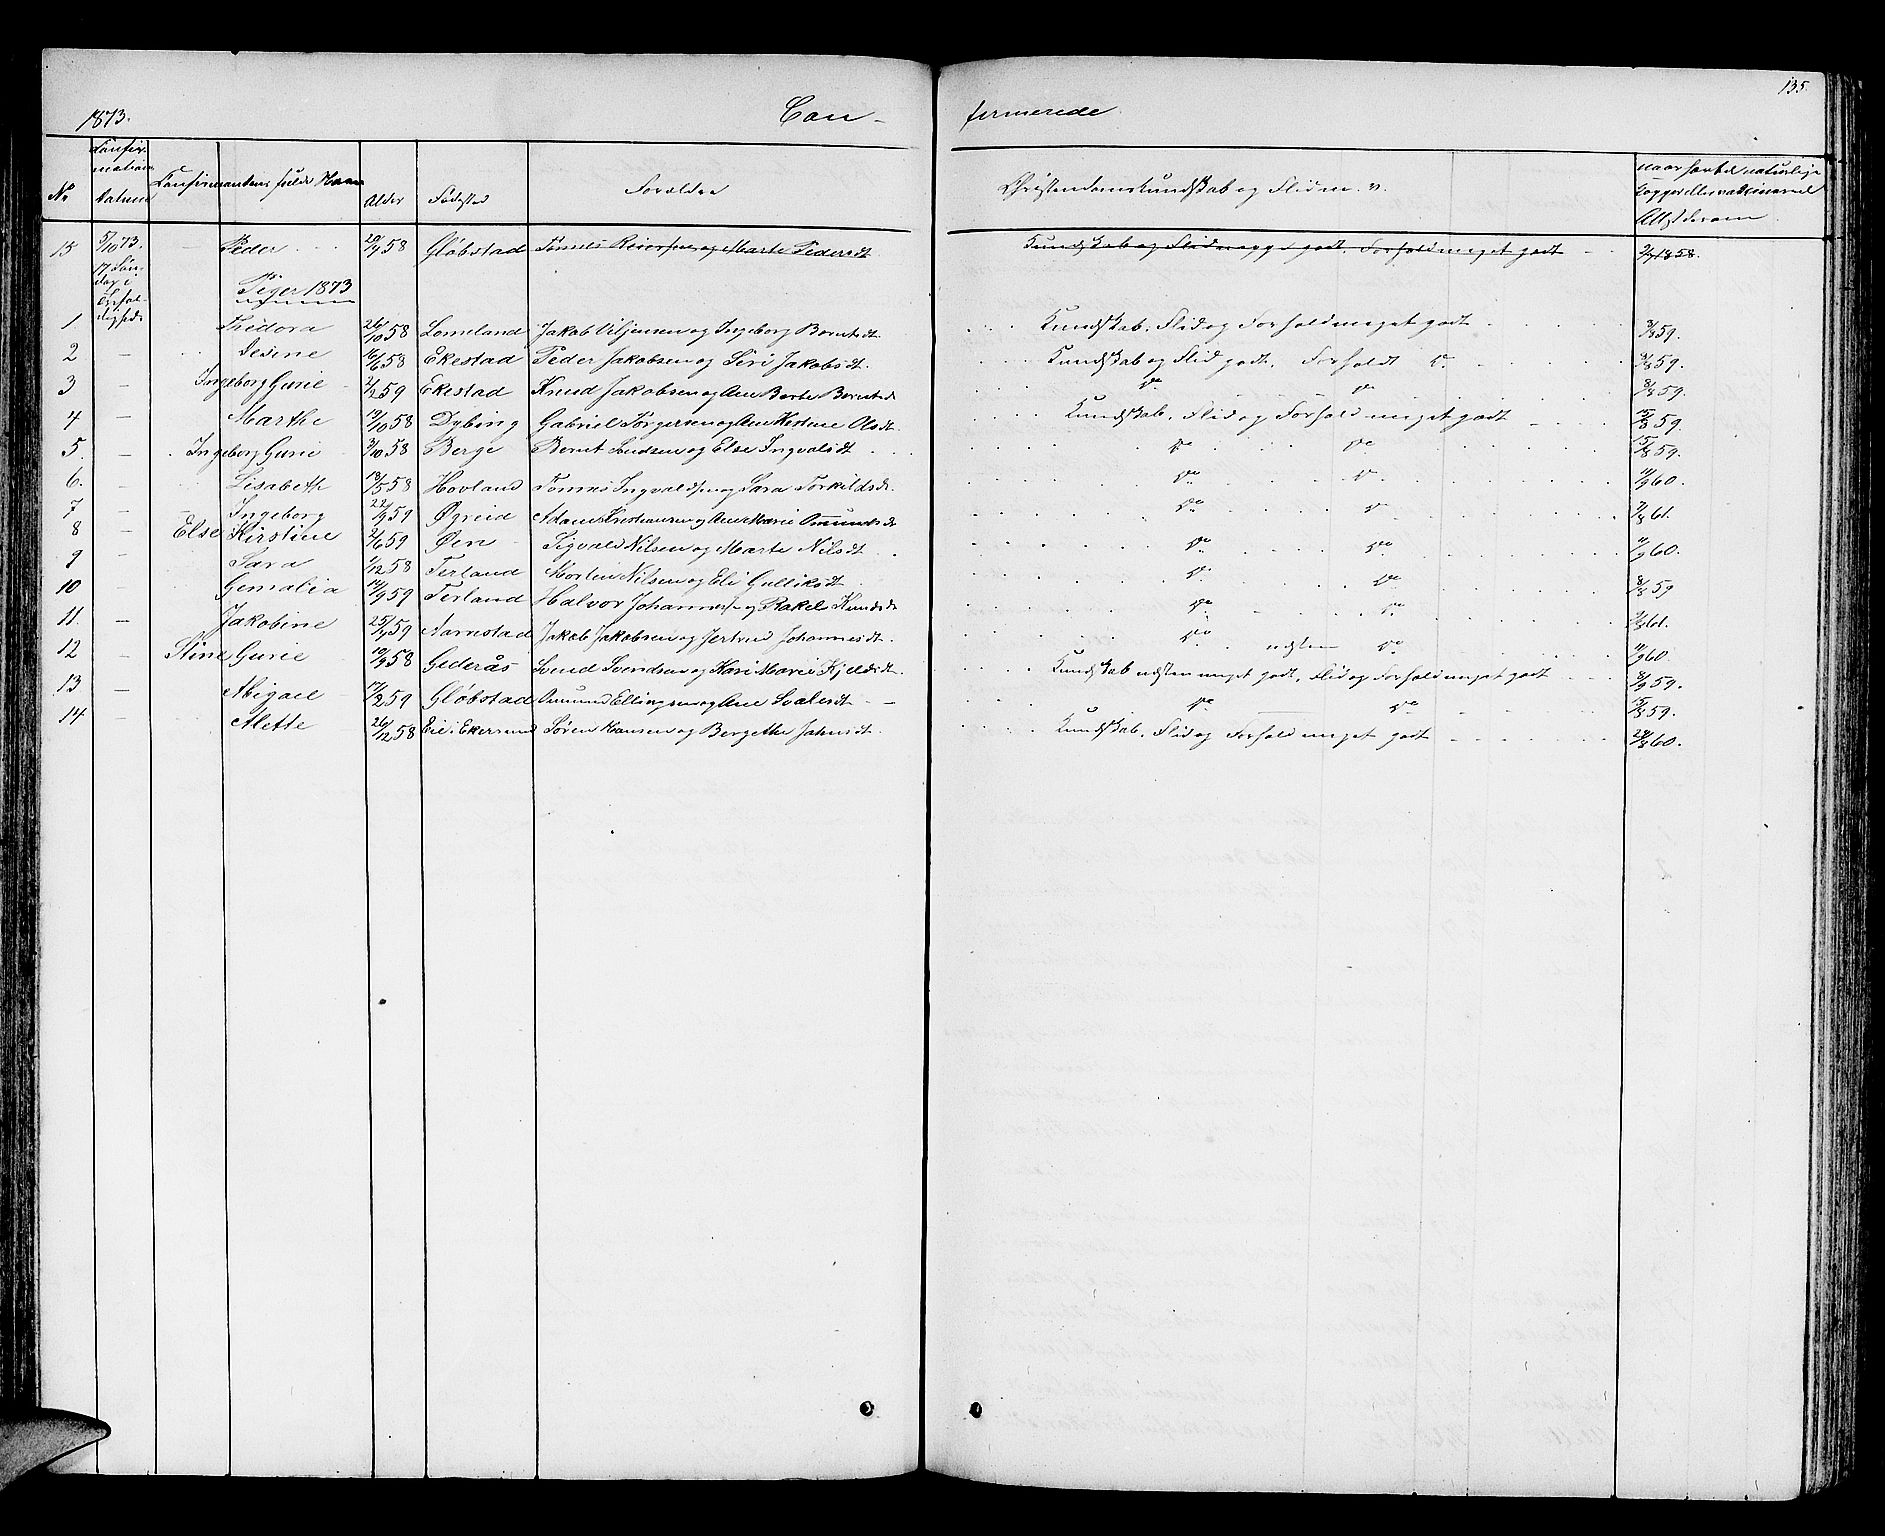 135.
1873. Con- firmerede
No Confirmations Datum Confirmantens fulde Navn Alder Fødested Forældre Christendomskundskab og Flid m. v. naar havte naturlige Kopper eller vaccineret Attest derom
15 5/10 73. Peder 20/4 58 Gløbstad Tønnes Reiersen og Marte Pedersdt Kundskab og Flid meget godt. Forhold meget godt 2/7 1858.
17 Søndag i Trefoldighed
Piger 1873
1 Thedora 26/10 58 Lomeland Jakob Viljensen og Ingeborg Berntsdt Kundskab, Flid og Forhold meget godt 3/8 59.
2 Desine 16/6 58 Ekestad Peder Jakobsen og Siri Jakobsdt. Kundskab og Flid godt. Forholdt do 3/8 59.
3 Ingeborg Gurie 2/2 59 Ekestad Knud Jakobsen og Ane Berte Berntsd do do 3/8 59.
4 Marthe 19/10 58 Dybing Gabriel Torgersen og Ane Kestine Olsdt. Kundskab, Flid og Forhold meget godt 15/8 59.
5. Ingeborg Gurie 3/10 58 Berge Bernt Sendsen og Else Ingvalsdt do do 15/8 59.
6. Lisabeth 13/5 58 Hovland Tønnes Ingvaldsen og Sara Torkildsd. do do 11/9 60.
7 Ingeborg 22/9 59 Øgreid Adam Kristiansen og Ane Marie Omundsd do do 7/8 61.
8 Else Kirstine 2/6 59 Øen Sigvald Nilsen og Marte Nilsdt do do 11/9 60.
9 Sara 1/12 58 Terland Morten Nilsen og Eli Gulliksdt do do 3/8 59
10 Gemalia 14/9 59 Terland Halvor Johannesen og Rakel Knudsd do do 7/8 61.
11. Jakobine 25/4 59 Aarrestad Jakob Jakobsen og Jertrud Johannesdt. do nesten do 11/9 60.
12 Stine Gurie 10/9 58 Gederås Svend Svendsen og Kari Marie Kjeldsdt. Kundskab nesten meget godt, Flid og Forhold meget godt 3/9 59.
13 Abigael 17/2 59 Gløbstad Omund Ellingsen og Ane Svalesdt do do 15/8 59.
14 Mette 26/12 58 Eie i Ekersund Søren Hansen og Bergethe Jahnsdt. Kundskab, Flid og Forhold meget godt 28/8 60.